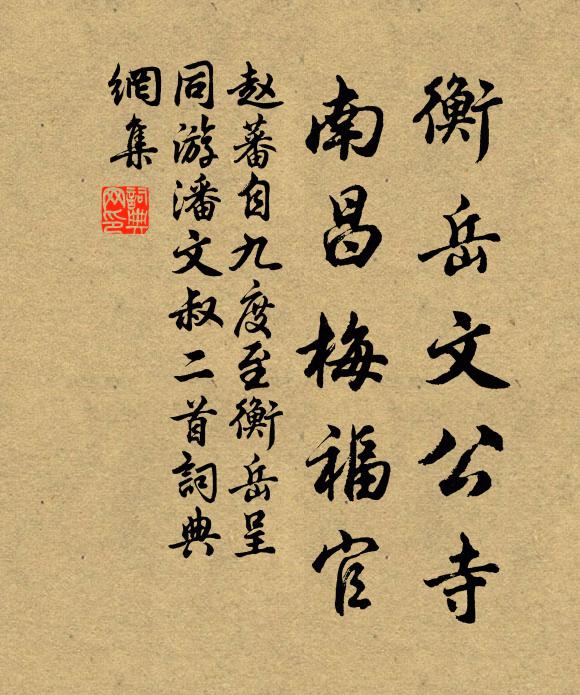 衡岳文公寺
南昌梅福官
赵蕃自九度至衡岳呈
同游潘文叔二首詞典
網集
詞典網印